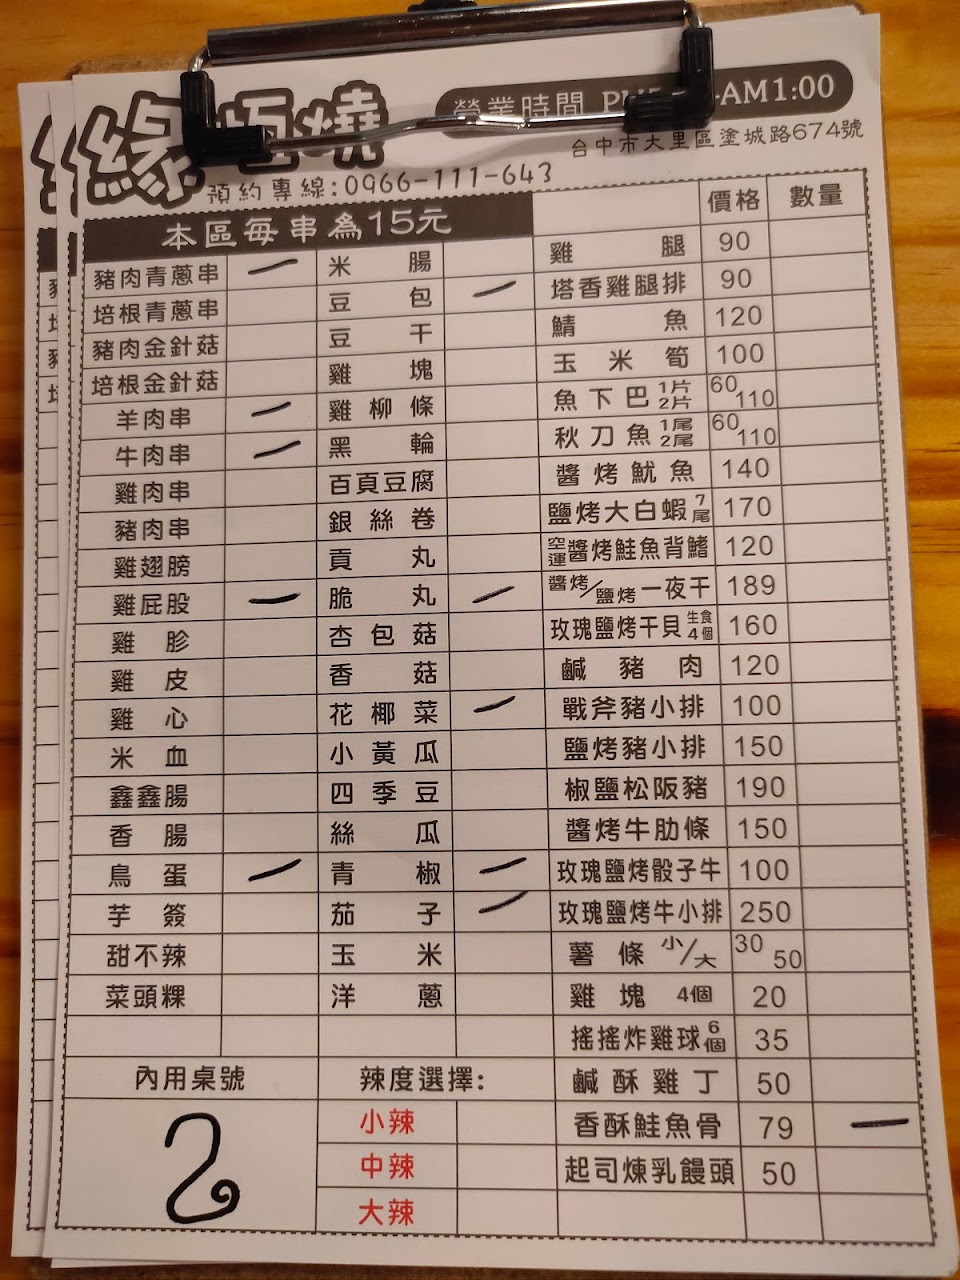 緣恆燒
營業時間 PM -AM1:00
台中市大里區塗城路674號
預約專線:0966-111-643
本區每串為15元 價格 數量
豬肉青蔥串 一 米腸 雞腿 90
培根青蔥串 豆包 一 塔香雞腿排 90
豬肉金針菇 豆干 鯖魚 120
培根金針菇 雞塊 玉米筍 100
羊肉串 一 雞柳條 魚下巴 1片 2片 60 110
牛肉串 一 黑輪 秋刀魚 1尾 2尾 60 110
雞肉串 百頁豆腐 醬烤魷魚 140
豬肉串 銀絲卷 鹽烤大白蝦 7尾 170
雞翅膀 貢丸 空運醬烤鮭魚背鰭 120
雞屁股 一 脆丸 一 醬烤/鹽烤一夜干 189
雞胗 杏包菇 玫瑰鹽烤干貝 生食4個 160
雞皮 香菇 鹹豬肉 120
雞心 花椰菜 一 戰斧豬小排 100
米血 小黃瓜 鹽烤豬小排 150
鑫鑫腸 四季豆 椒鹽松阪豬 190
香腸 絲瓜 醬烤牛肋條 150
鳥蛋 一 青椒 一 玫瑰鹽烤骰子牛 100
芋簽 茄子 一 玫瑰鹽烤牛小排 250
甜不辣 玉米 薯條 小/大 30 50
菜頭粿 洋蔥 雞塊 4個 20
搖搖炸雞球 6個 35
內用桌號 辣度選擇: 鹹酥雞丁 50
2 小辣 香酥鮭魚骨 79 一
中辣 起司煉乳饅頭 50
大辣